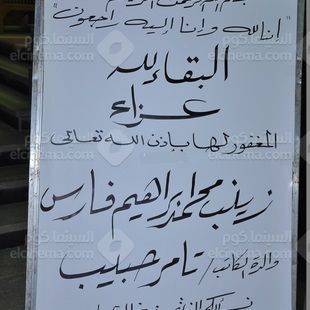 بسم الله الرحمن الرحيم
"إنا لله وإنا إليه راجعون"
البقاء لله
عزاء
المغفور لها بإذن الله تعالى
زينب محمد إبراهيم فارس
والدة الكاتب / تامر حبيب
السينما.كوم
elcinema.com